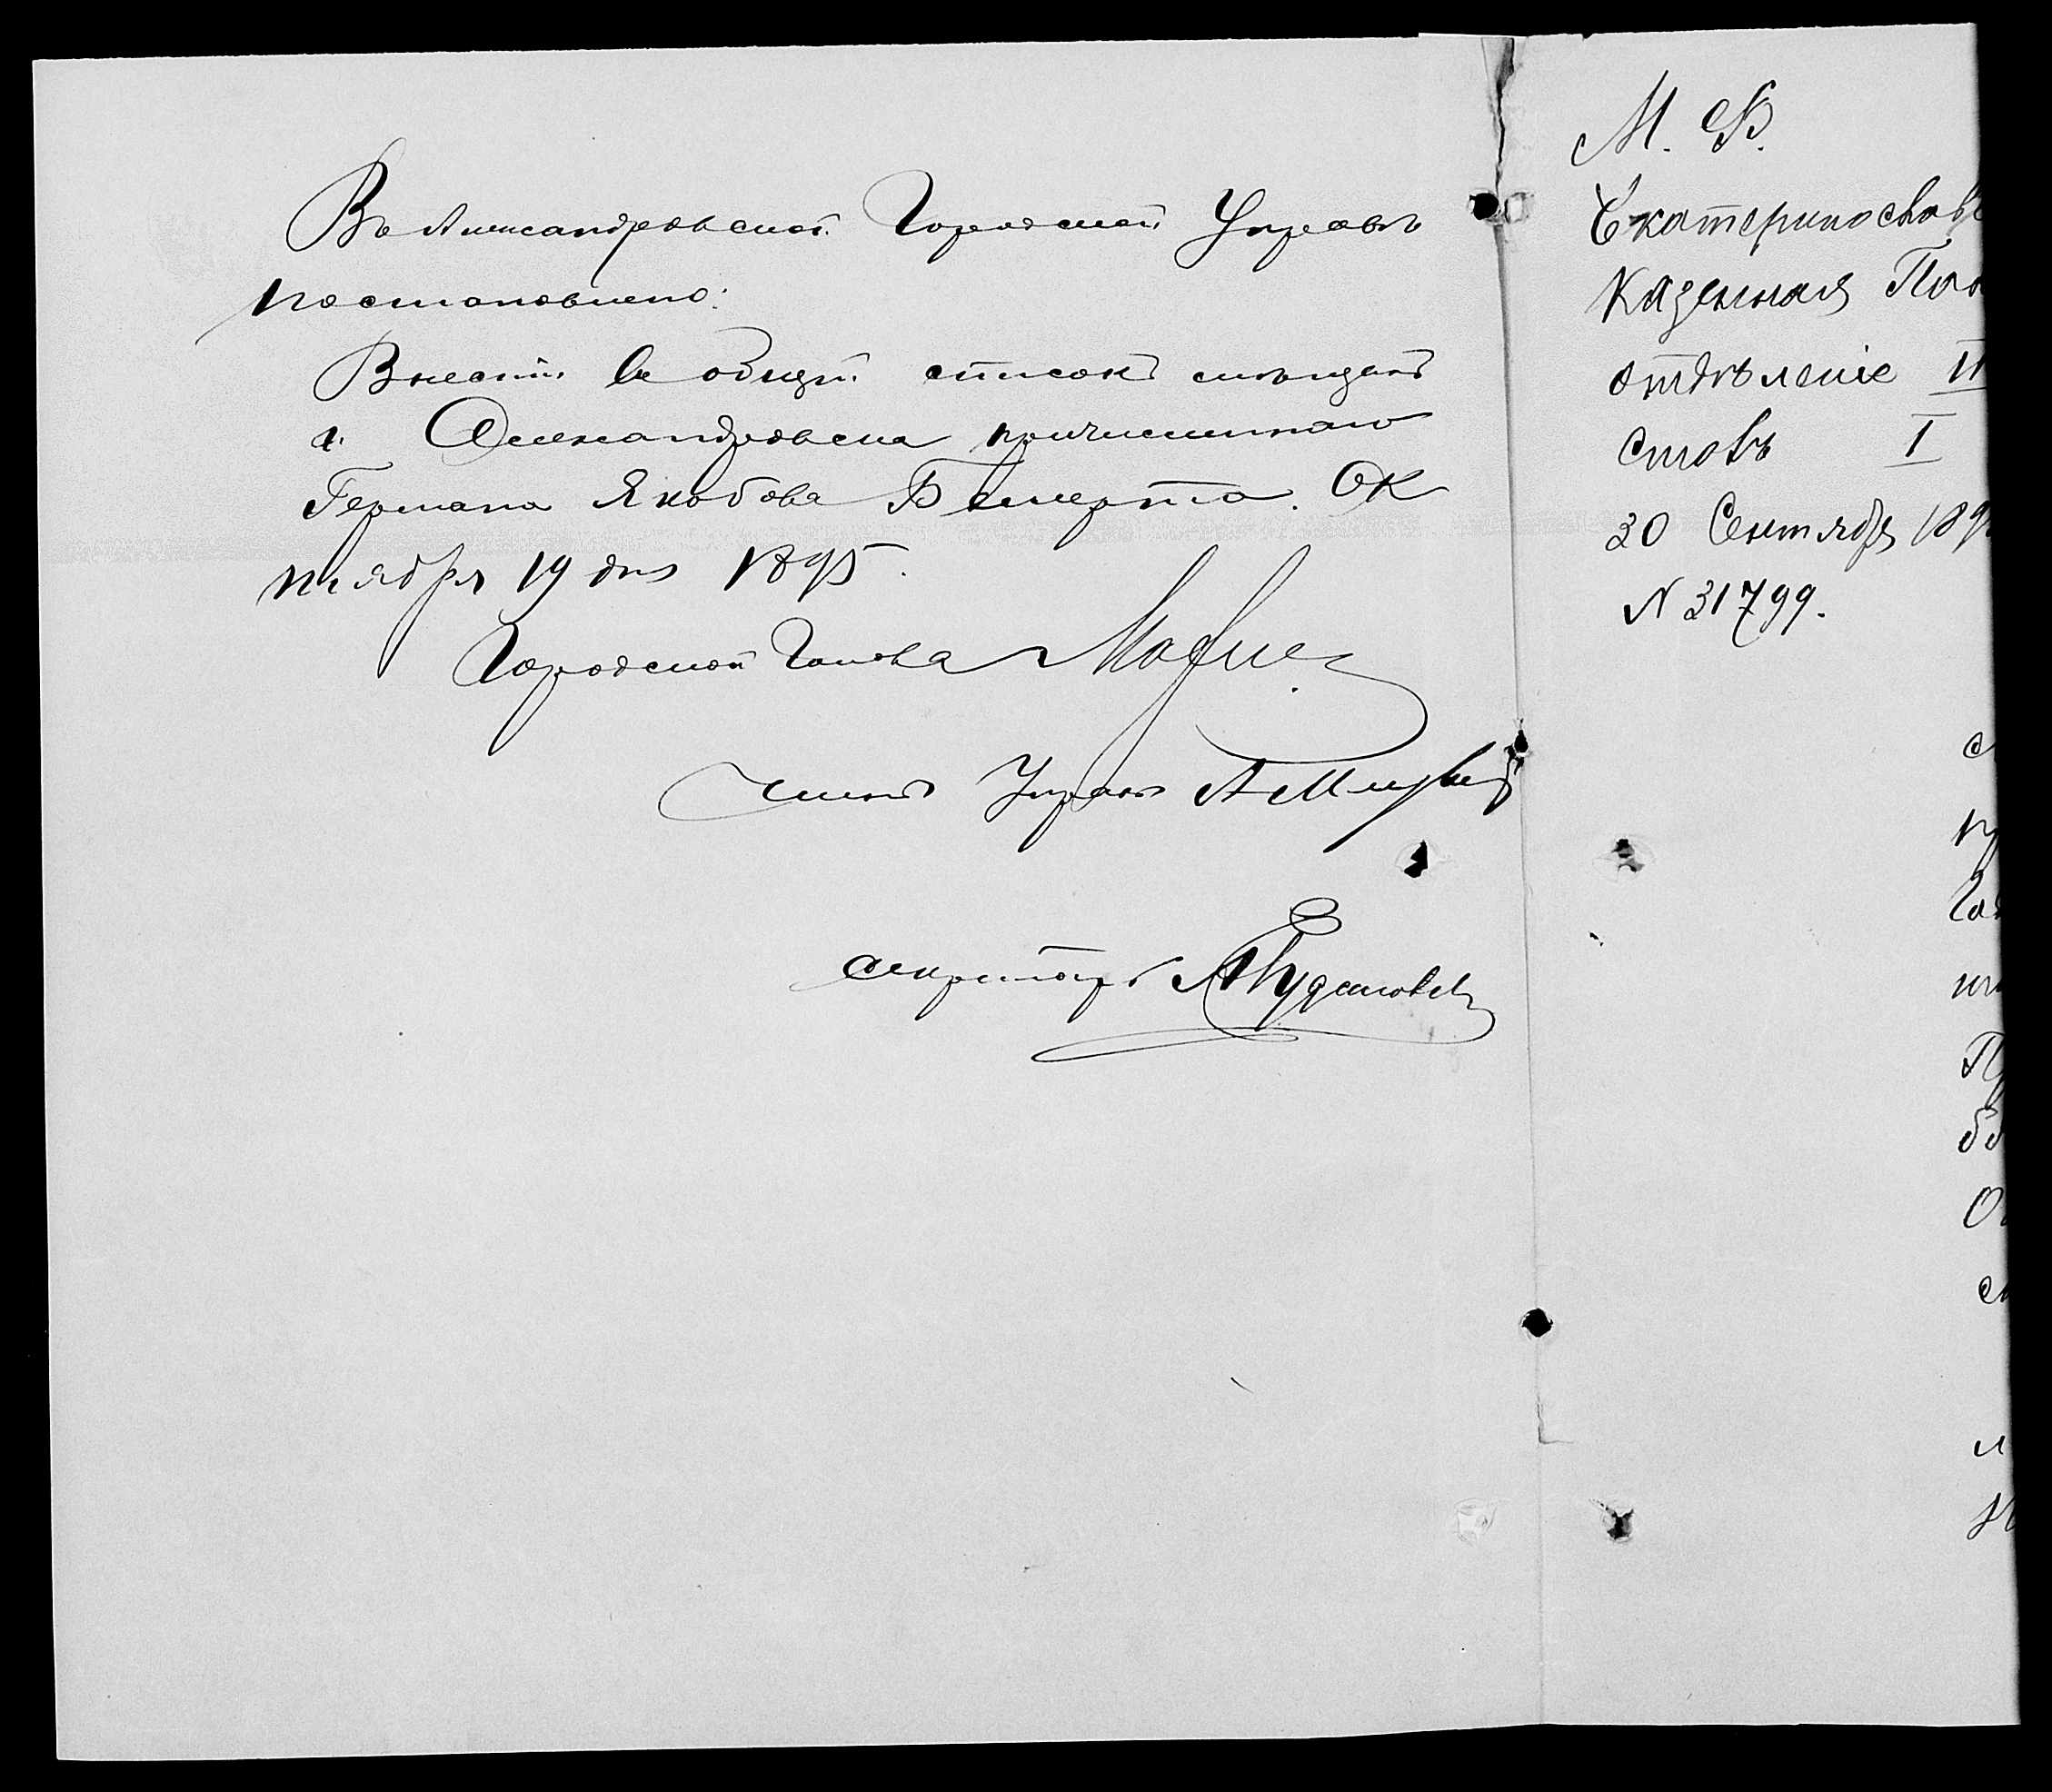 Въ Александровской Городской Управѣ
постановлено:
Внести въ общій списокъ мѣщанъ
г. Александровска причисленнаго
Германа Якобова Бемерта. Ок
тября 19 дня 1895.
Городской Голова
Членъ Управы
Секретарь
М. Ф.
Екатеринославс
Казенная Пал
отдѣленіе II
столъ I
30 Сентября 189
N 31799.